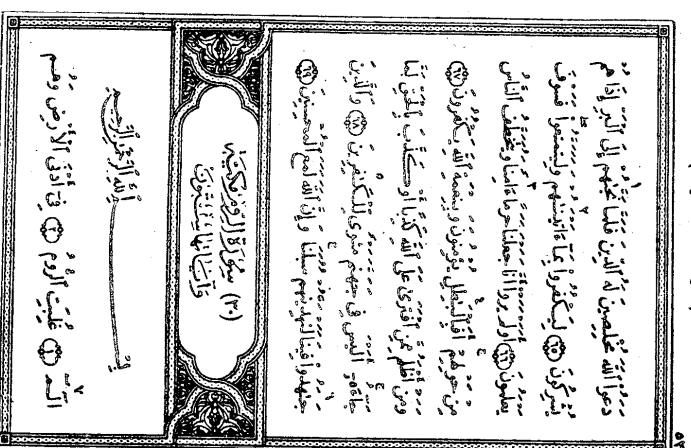 دَعَوُا۟ ٱللَّهَ مُخْلِصِينَ لَهُ ٱلدِّينَ فَلَمَّا نَجَّىٰهُمْ إِلَى ٱلْبَرِّ إِذَا هُمْ
يُشْرِكُونَ ﴿٦٥﴾ لِيَكْفُرُوا۟ بِمَآ ءَاتَيْنَٰهُمْ وَلِيَتَمَتَّعُوا۟ فَسَوْفَ
يَعْلَمُونَ ﴿٦٦﴾ أَوَلَمْ يَرَوْا۟ أَنَّا جَعَلْنَا حَرَمًا ءَامِنًا وَيُتَخَطَّفُ ٱلنَّاسُ
مِنْ حَوْلِهِمْ أَفَبِٱلْبَٰطِلِ يُؤْمِنُونَ وَبِنِعْمَةِ ٱللَّهِ يَكْفُرُونَ ﴿٦٧﴾
وَمَنْ أَظْلَمُ مِمَّنِ ٱفْتَرَىٰ عَلَى ٱللَّهِ كَذِبًا أَوْ كَذَّبَ بِٱلْحَقِّ لَمَّا
جَآءَهُۥٓ أَلَيْسَ فِى جَهَنَّمَ مَثْوًى لِّلْكَٰفِرِينَ ﴿٦٨﴾ وَٱلَّذِينَ
جَٰهَدُوا۟ فِينَا لَنَهْدِيَنَّهُمْ سُبُلَنَا وَإِنَّ ٱللَّهَ لَمَعَ ٱلْمُحْسِنِينَ ﴿٦٩﴾
(٣٠) سُورَةُ الرُّومِ مَكِّيَّة
وَآيَاتُهَا سِتُّونَ
بِسْمِ ٱللَّهِ ٱلرَّحْمَٰنِ ٱلرَّحِيمِ
الٓمٓ ﴿١﴾ غُلِبَتِ ٱلرُّومُ ﴿٢﴾ فِىٓ أَدْنَى ٱلْأَرْضِ وَهُم